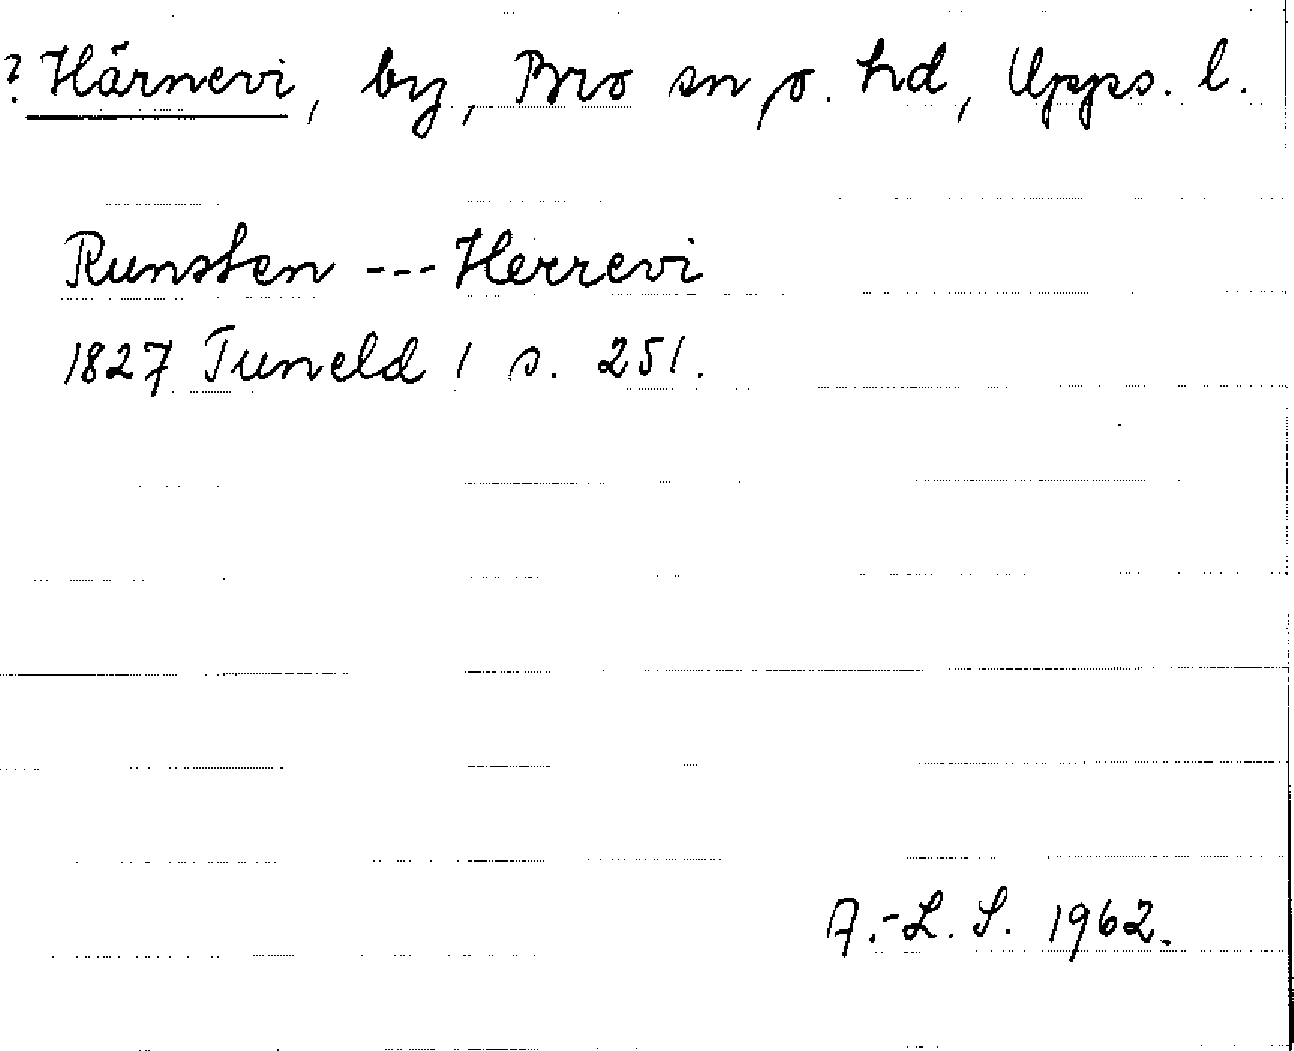 ? Härnevi, by, Bro sn o. hd, Upps. l.
Runsten --- Herrevi
1827 Tuneld 1 s. 251.
A.-L. S. 1962.